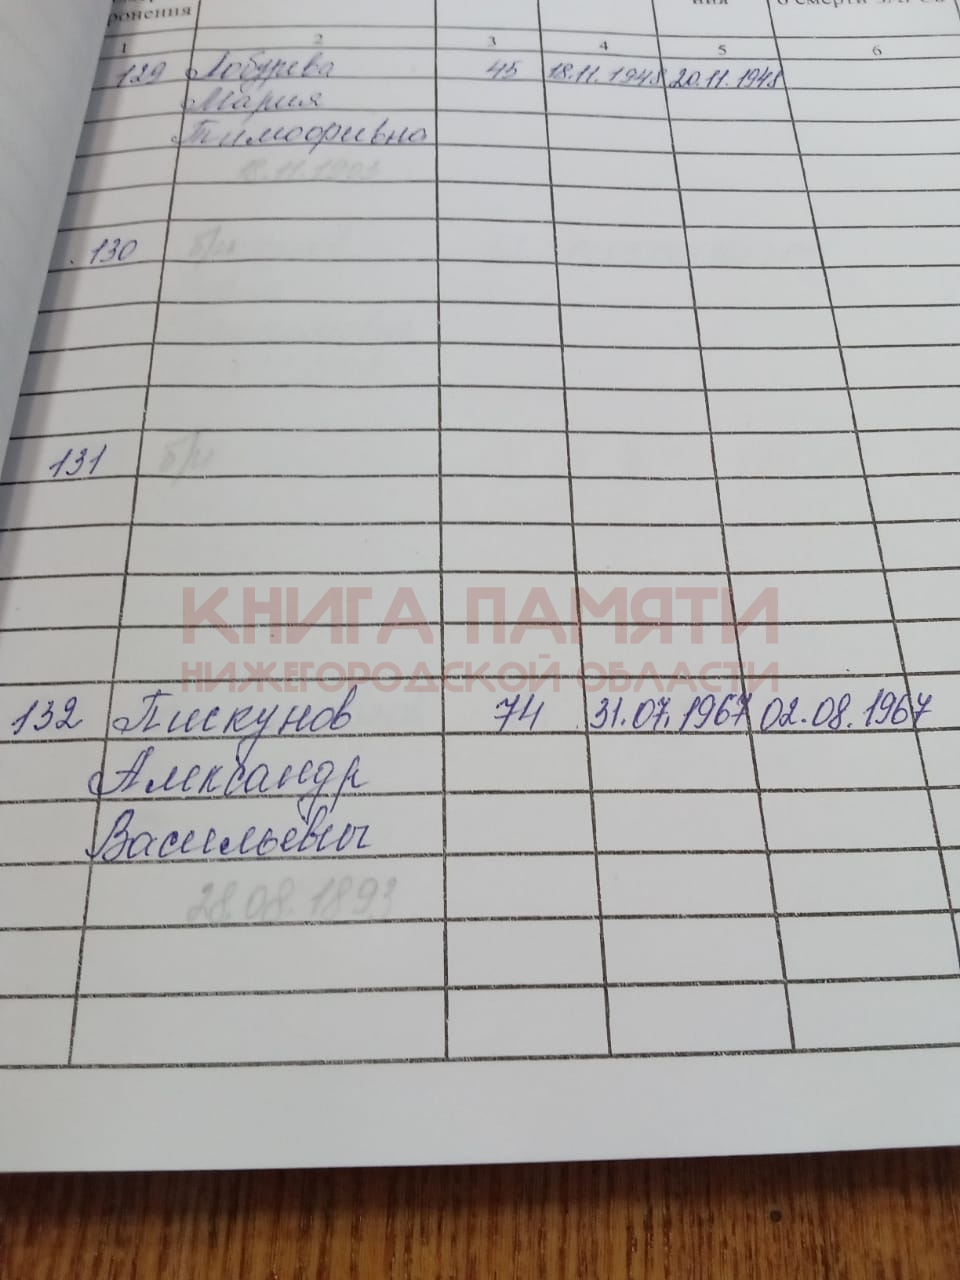 ронения
1 2 3 4 5 6
129 Лобурева 45 18.11.1948 20.11.1948
Мария
Тимофеевна
18.11.1903
130 б/и
131 б/и
КНИГА ПАМЯТИ
НИЖЕГОРОДСКОЙ ОБЛАСТИ
132 Пискунов 74 31.07.1967 02.08.1967
Александр
Васильевич
28.08.1893